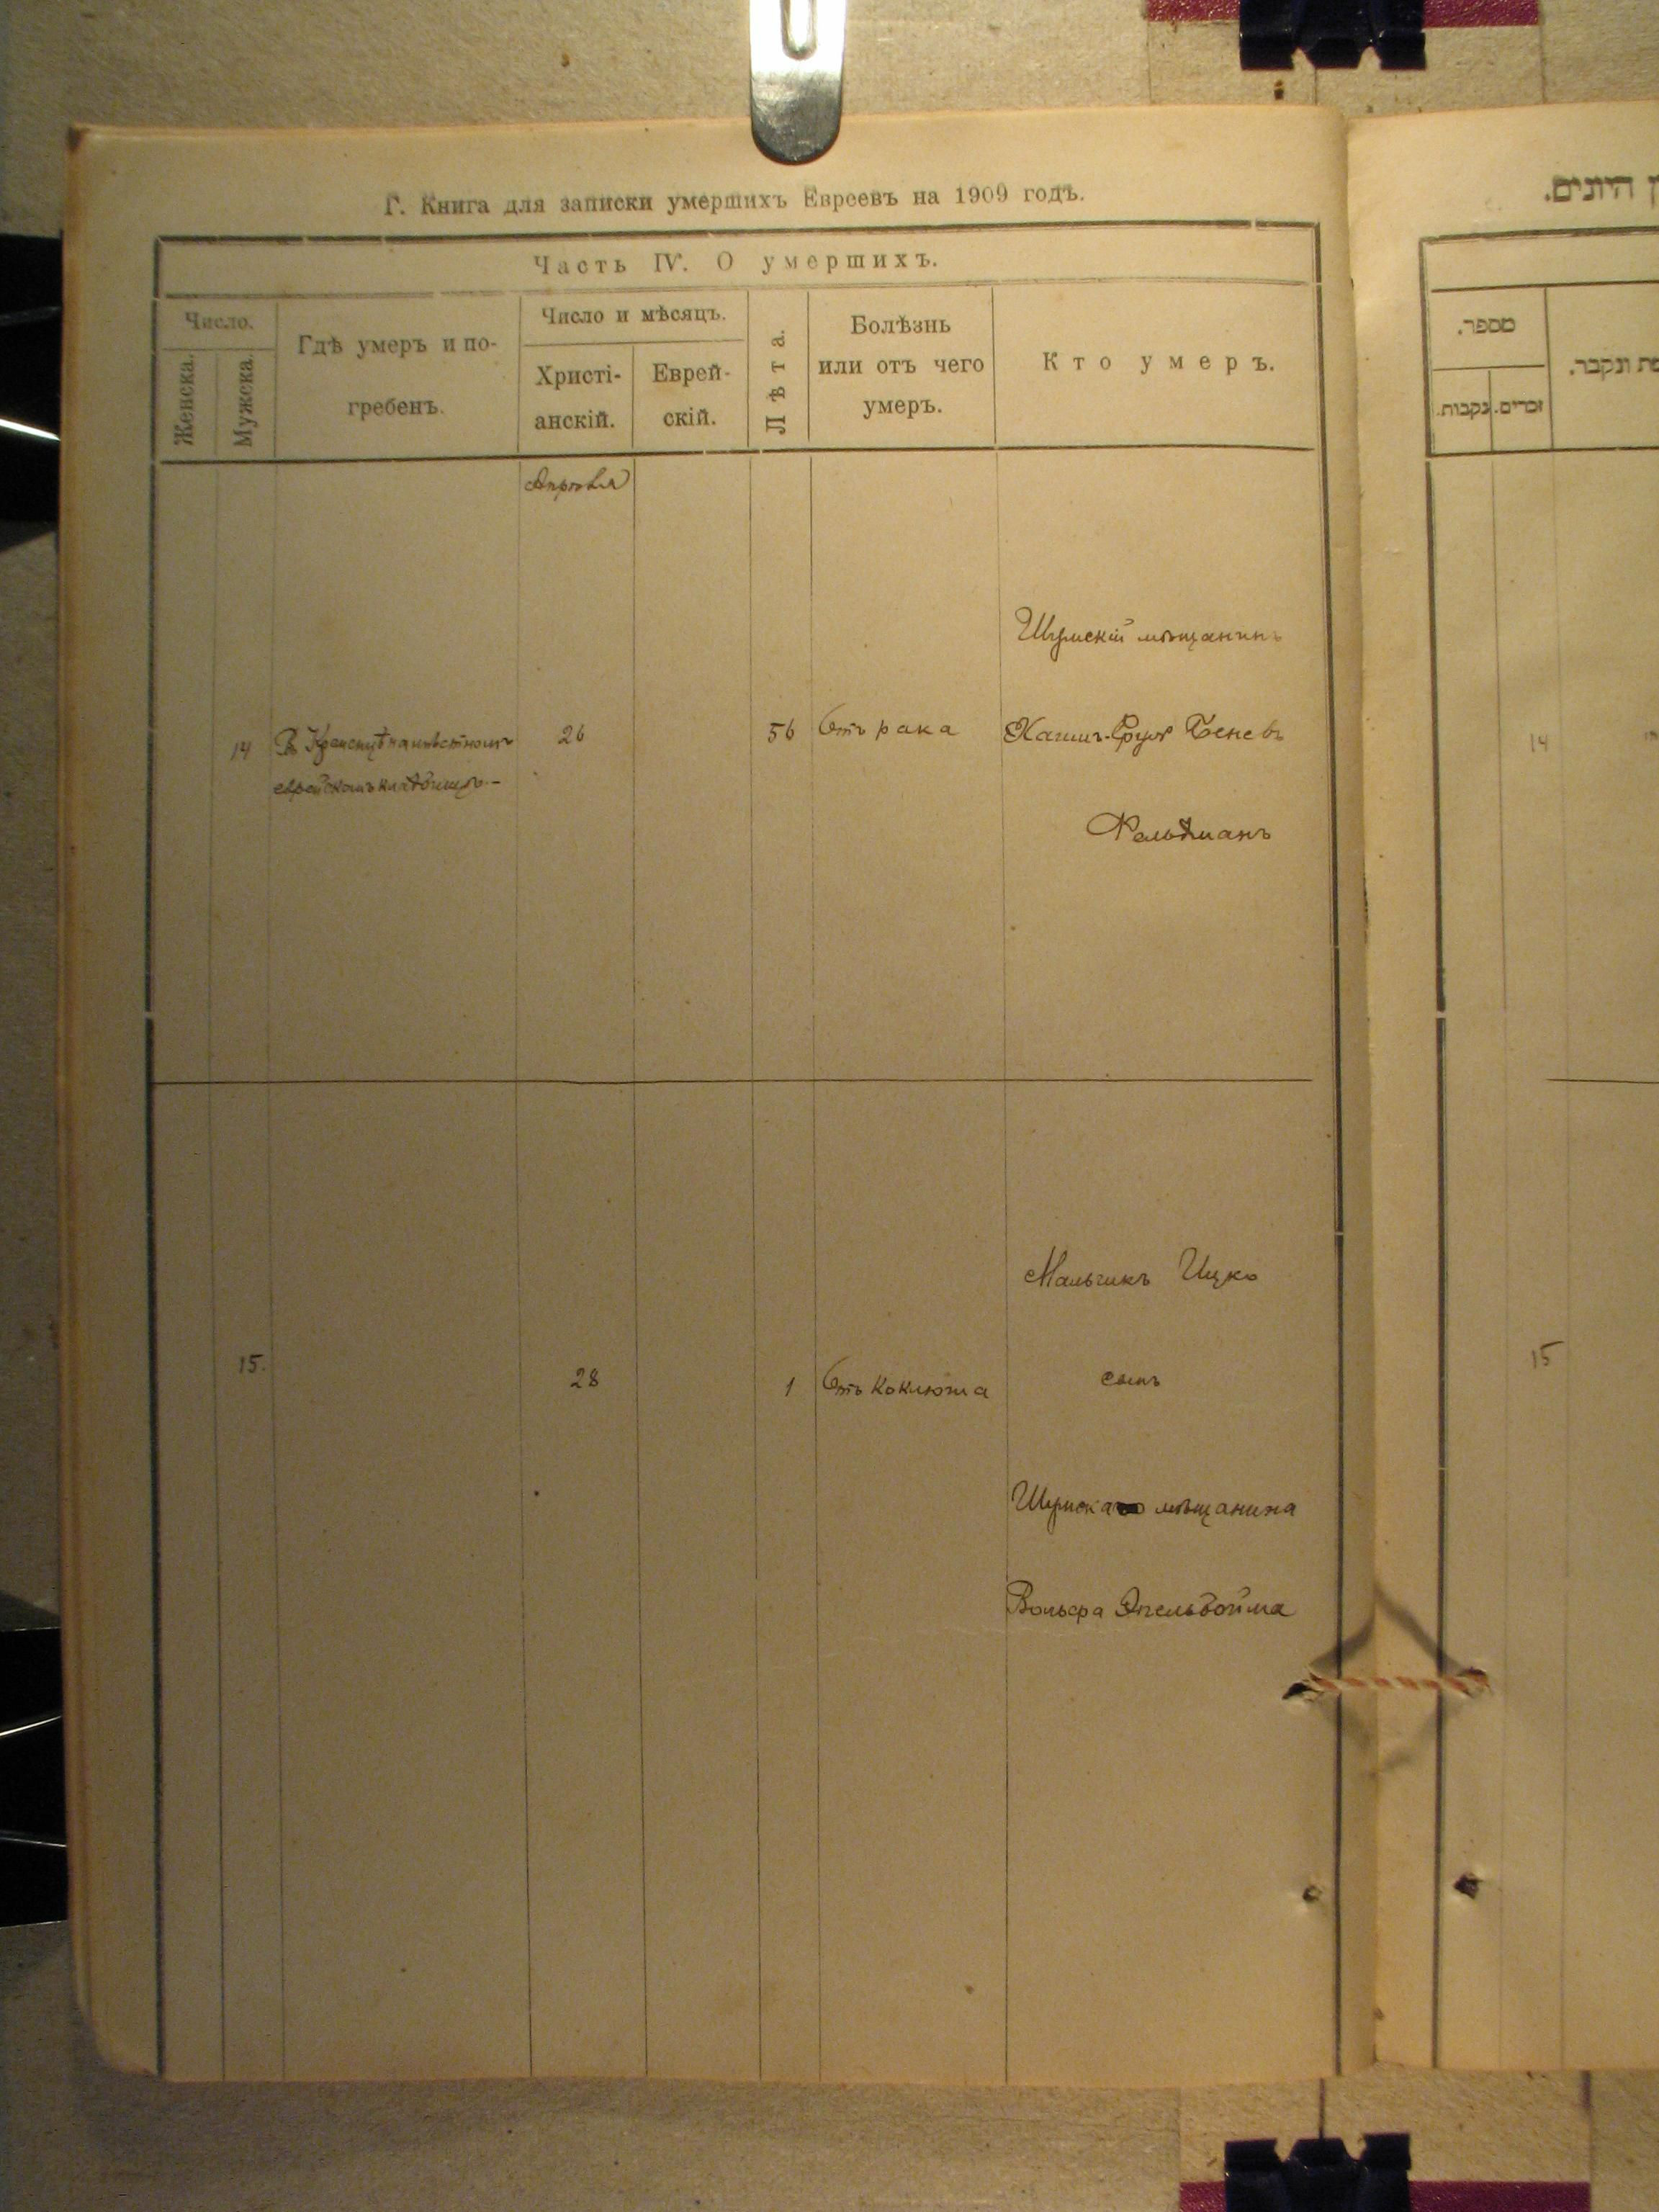 Г. Книга для записки умершихъ Евреевъ на 1909 годъ.
Часть IV. О умершихъ.
Число.
Женска.
Мужска.
Гдѣ умеръ и по-
гребенъ.
Число и мѣсяцъ.
Христі-
анскій.
Еврей-
скій.
Лѣта.
Болѣзнь
или отъ чего
умеръ.
Кто умеръ.
Апрѣля
Шумскій мѣщанинъ
14 В на мѣстномъ 26 56 Отъ рака Хаимъ- Беневъ
еврейскомъ кладбищѣ.-
Фельдманъ
Мальчикъ Ицко
15. 28 1 Отъ Коклюша сынъ
Шумскаго мѣщанина
Вольфа Эпельбойма
מספר.
זכרים.
נקבות.
ונקבר.
14
15